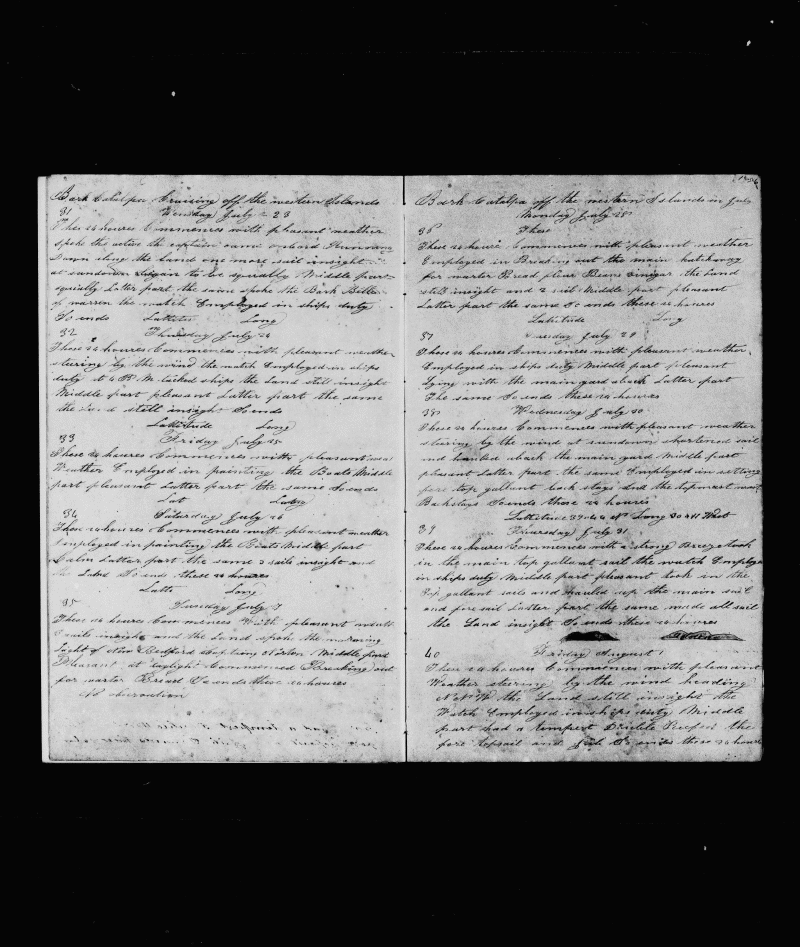 Bark Catalpa Cruising off the western Islands
31 Wensday July 23
These 24 houres Commences with pleasant weather
spoke the the captain came onboard Running
Down along the Land one more sail insight
at sundown Began to be squally Middle part
squally Latter part the same spoke the Bark
of warren the watch Employed in ships duty
So ends Latteto Long
32 Thursday July 24
These 24 houres Commences with pleasant weather
steering by the wind the watch Employed in ships
duty at 4 P.M. tacked ships the Land still insight
Middle part pleasant Latter part the same
the Land still insight So ends
Lattitude Long
33 Friday July 25
These 24 houres Commences with pleasant
Weather Employed in painting the Boats Middle
part pleasant Latter part the same So ends
Lat Long
34 Saturday July 26
These 24 houres Commences with pleasant weather
Employed in painting the Boats Middle part
Calm Latter part the same 3 sails insight and
Land So ends these 24 houres
Latte Long
35 Sunday July
These 24 houres Commences With pleasant winds
sails insight and the Land spoke the morning
Light of New Bedford Captain Norton Middle part
Pleasant at daylight Commenced Breaking out
for warter Bread So ends these 24 houres
No observation
Bark Catalpa off the western Islands in July
Monday July 28
36 These
These 24 houres Commences with pleasant weather
Employed in Breaking out the main hatchway
for warter Bread flour Beans vinegar the Land
still insight and 2 sail Middle part pleasant
Latter part the same So ends these 24 houres
Latitude Long
37 Tuesday July 29
These 24 houres Commences with pleasant weather
Employed in ships duty Middle part pleasant
Lying with the main yard aback Latter part
The same So ends these 24 houres
38 Wednesday July 30
These 24 houres Commences with pleasant weather
steering by the wind at sundown shortened sail
and hauled aback the main yard Middle part
pleasant Latter part the same Employed in setting
fore top gallant back stays and the topmast
Backstays So ends these 24 houres
Lattitude 39-44 N Long 30-11 West
39 Thursday July 31
These 24 houres Commences with a strong Breeze took
in the main top gallant sail the watch Employed
in ships duty Middle part pleasant took in the
Top gallant sails and hauled up the main sail
and fore sail Latter part the same made all sail
the Land insight So ends these 24 houres
40 Friday August 1
These 24 houres Commences with pleasant
Weather steering by the wind heading
the Land still insight the
Watch Employed in ships duty Middle
part had a tempest Double Reefed the
fore topsail and Jib So ends these 24 houres